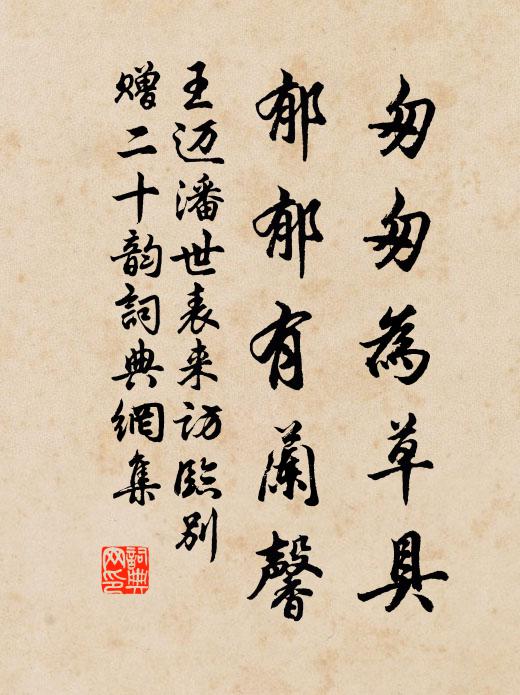 匆匆為草具
郁郁有蘭馨
王迈潘世表来访臨別
赠二十韵詞典網集
詞典
网印